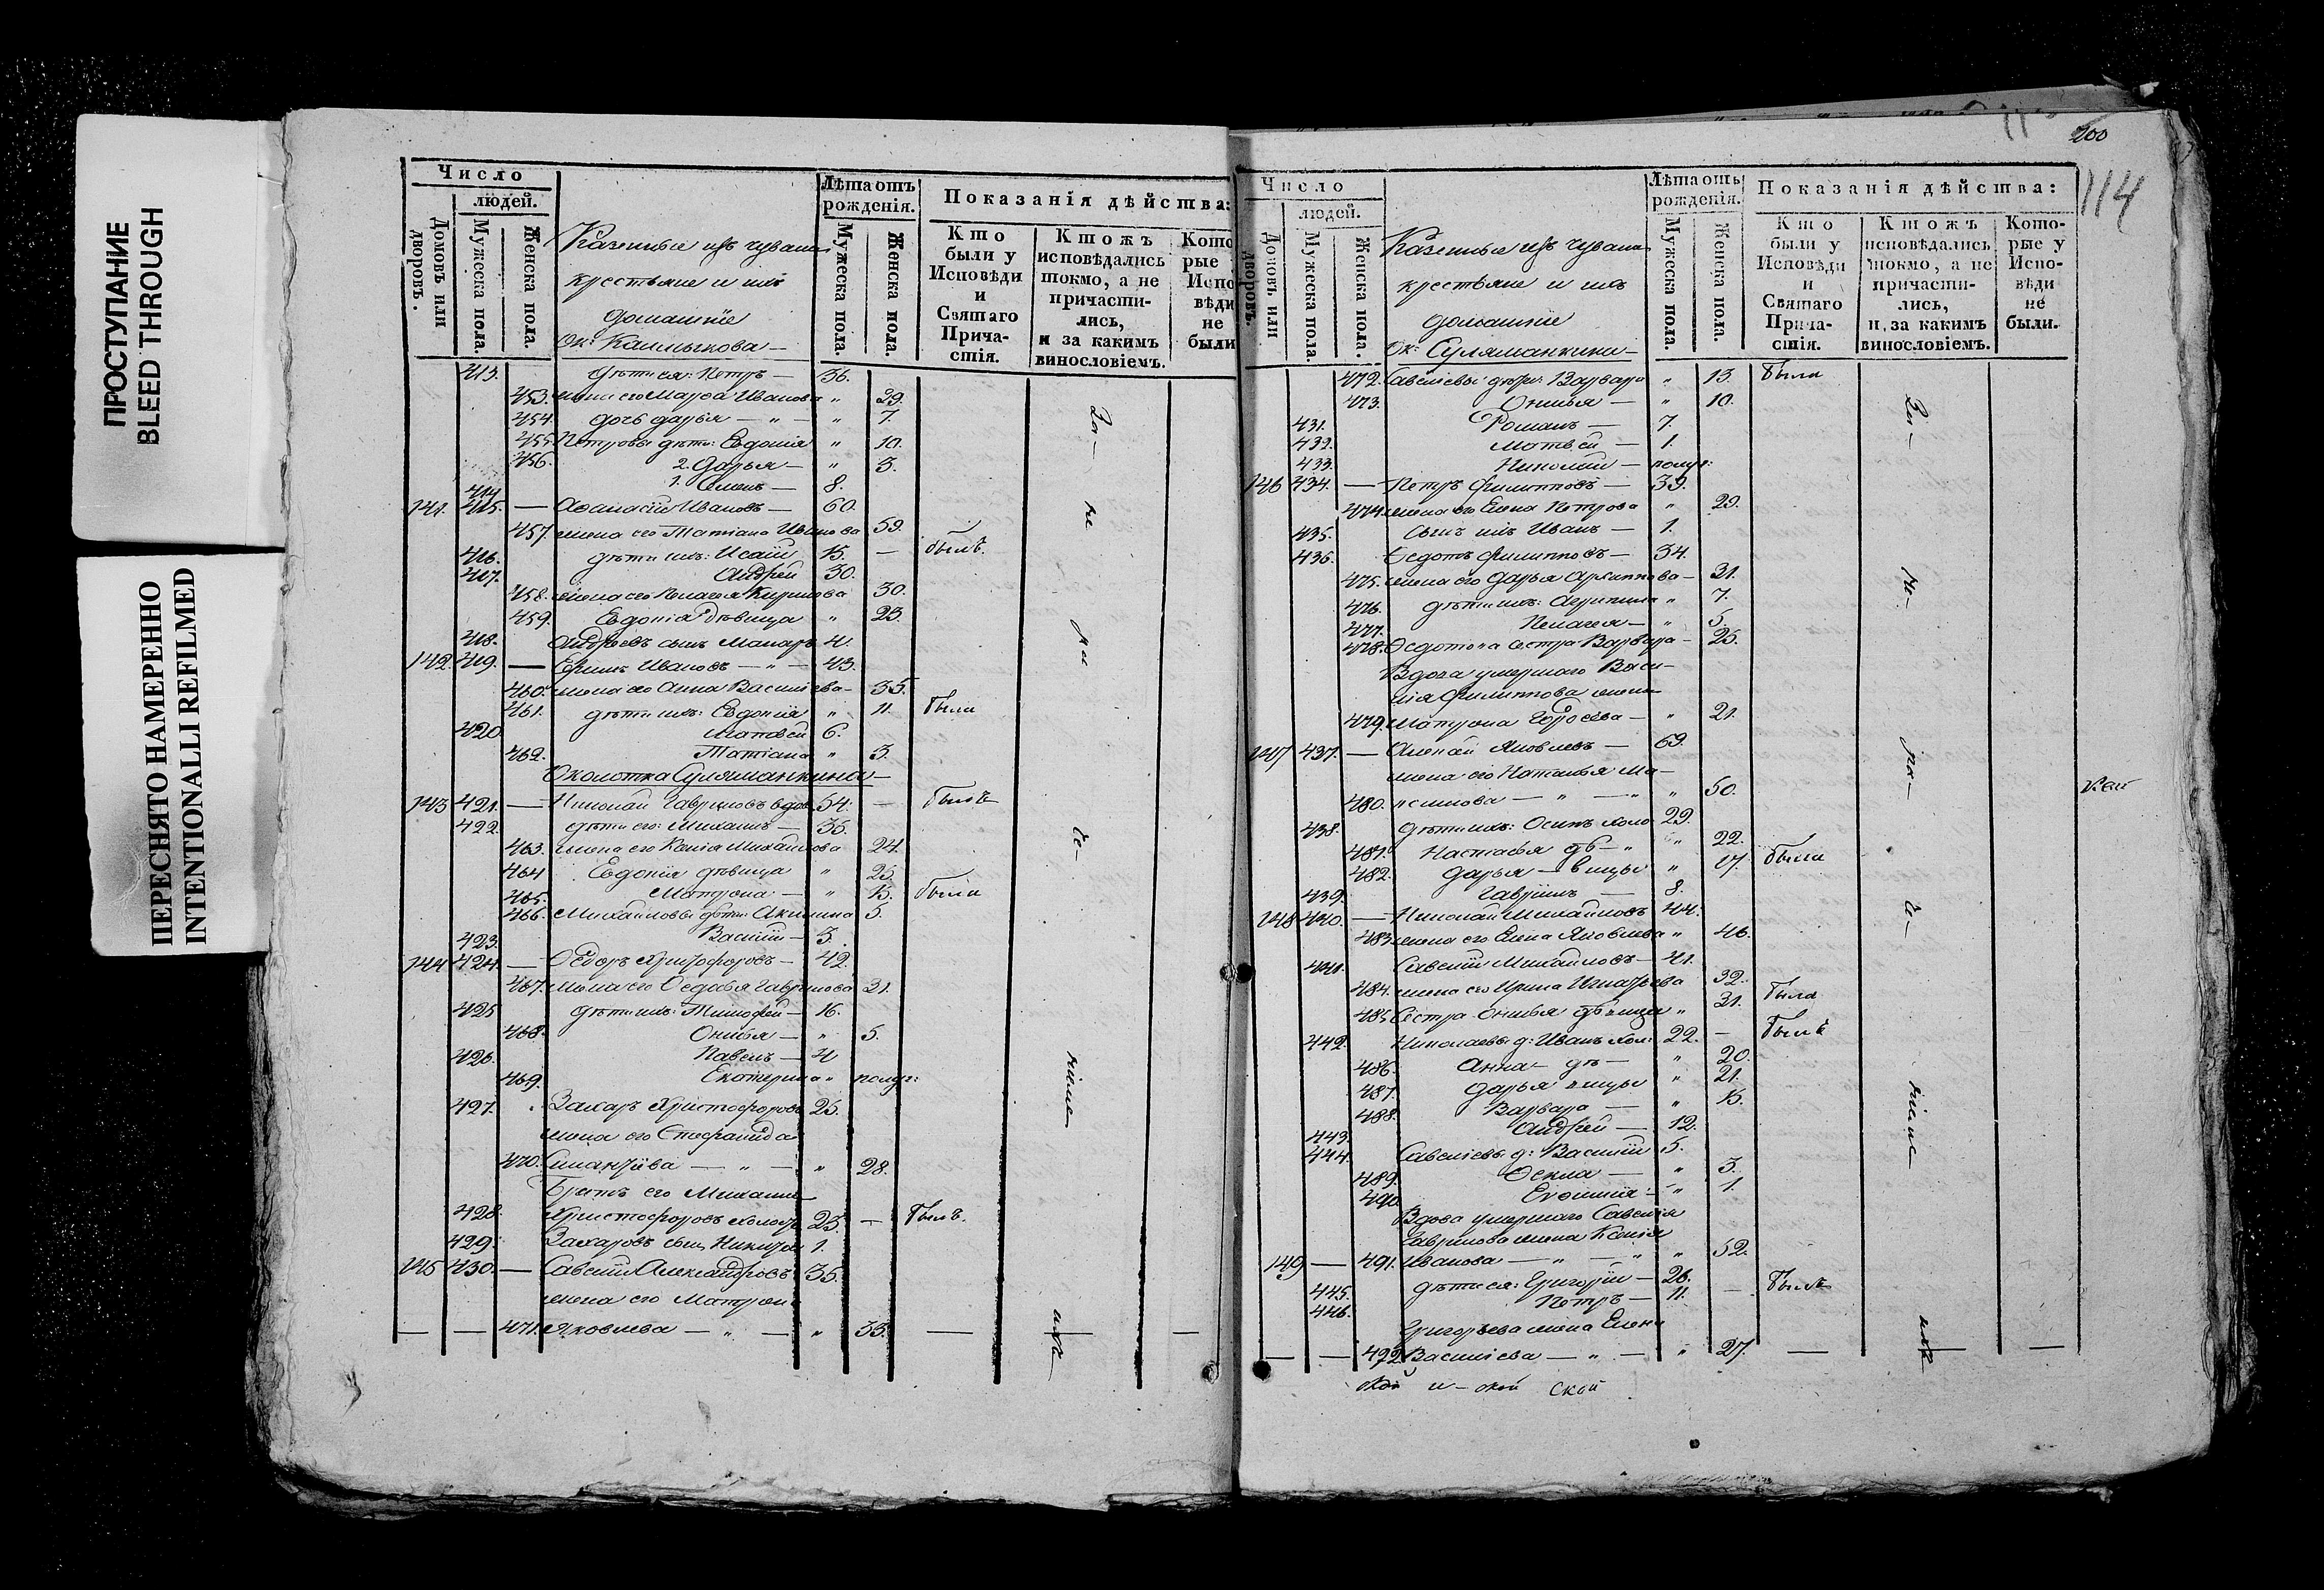 ПРОСТУПАНИЕ
BLEED THROUGH
ПЕРЕСНЯТО НАМЕРЕННО
INTENTIONALLI REFILMED
Число
людей.
Домовъ или дворовъ.
Мужеска пола.
Женска пола.
Казенные изъ чувашъ
крестьяне и ихъ
домашніе
Ок: Калмыкова —
Лѣта отъ рожденія.
Мужеска пола.
Женска пола.
Показанія дѣйства:
Кто были у Исповѣди и Святаго Прича-стія.
Ктожъ исповѣдались токмо, а не причасти-лись, и за какимъ винословіемъ.
Кото рые Испо вѣди не были
413. дѣти ея: Петръ — 36.
453. жена его Марѳа Иванова „ 29.
454. дочь дарья — „ — „ 7.
455. Петровы дѣти: Евдокія „ 10.
456. 2. Дарья — „ 3.
414 1. Семенъ — 8.
141. 415. — Аѳанасій Ивановъ — 60.
457. жена его Татіана Иванова 59.
416. дѣти ихъ: Исаій 15. — былъ.
417. Андрей 30.
458. жена его Пелагея Кирилова 30.
459. Евдокія дѣвица „ 23.
418. Андреевъ сынъ Макаръ 4.
142 419. — Ефимъ Ивановъ — „ — 43.
460. жена его Анна Василіева — 35.
461. дѣти ихъ: Евдокія „ 11. была
420 Матвѣй 6.
462. Татіана „ 3.
Околотка Суляманкина —
143 421. — Николай Гавриловъ вдов. 54. — былъ
422. дѣти его: Михаилъ — 35.
463. жена его Ксенія Михайлова 24.
464 Евдокія дѣвица „ 25
465. Матрона — „ 15. была
466. Михайловы дѣти: Акилина 5.
423. Василій — 3.
144 424. — Ѳедоръ Христофоровъ — 42.
467. жена его Ѳедосья Гаврилова 31.
425 дѣти ихъ: Тимофей — 16.
468. Онисья — „ 5.
426. Павелъ — 4
469. Екатерина „ полуг:
427. Захаръ Христофоровъ 25.
жена его Стефанида
470. — „ — „ 28.
Братъ его Михаилъ
428. Христофоровъ холост 23 — былъ.
429. Захаровъ сынъ Никита 1.
145 430. — Савелій Александровъ 35.
жена его Матрона
— — 471. Яковлева — „ — „ 33. — —
За — не ра че — ніемъ ихъ
200
114
Число
людей.
Домовъ или дворовъ.
Мужеска пола.
Женска пола.
Казенные изъ чувашъ
крестьяне и ихъ
домашніе
Ок: Суляманкина —
Лѣта отъ рожденія.
Мужеска пола.
Женска пола.
Показанія дѣйства:
Кто были у Исповѣди и Святаго Прича-стія.
Ктожъ исповѣдались токмо, а не причасти-лись, и за какимъ винословіемъ.
Кото-рые у Испо-вѣди не были.
472. Савеліевы дѣти: Варвара „ 13. была
473. Онисья — „ 10.
431. Романъ — 7.
432. Матвѣй — 1.
433. Николай — полуг:
146 434. — Петръ Филипповъ — 39.
474. жена его Елена Петрова „ 29.
435. сынъ ихъ Иванъ — 1.
436. Ѳедотъ Филипповъ — 34.
475. жена его Дарья Архипова — 31.
476. дѣти ихъ: Агрипина „ 7.
477. Пелагея — „ 5.
478. Ѳедотова сестра Варвара — 25.
Вдова умершаго Васи-
лія Филиппова жена
479. Матрона — „ 21.
147 437. — Яковлевъ — 69.
жена его Наталья Ма-
480. ксимова — „ — „ „ 50.
438. дѣти ихъ: Осипъ холо 29.
481. Настасья дѣ — „ „ 22.
482. Дарья — вицы „ 17. была
439. Гаврiилъ — 8.
148 440. — Николай Михайловъ 44.
483. жена его Елена Яковлева „ 46.
441. Савелій Михайловъ — 41.
484. жена его Ирина Игнатьева 32.
485. Сестра Онисья дѣвица „ 31. была
442. Николаевы д: Иванъ хол: 22. — былъ
486. Анна — дѣ — „ 20.
487. Дарья вицы „ 21.
488. Варвара — „ 15.
443. Андрей — 12.
444. Савеліевы д: Василій 5.
489. Ѳекла — „ 3.
490. Евфимія — „ 1.
Вдова умершаго Савелія
Гаврилова жена Ксенія
149 — 491. Иванова — „ — „ „ 52.
445. дѣти ея: Григорій — 26. — былъ
446. Петръ — 11.
Григорьева жена Елена
— — 492. Василіева — „ — „ 27. — —
За — не — ра — че — ніемъ ихъ
окой и — окой ской